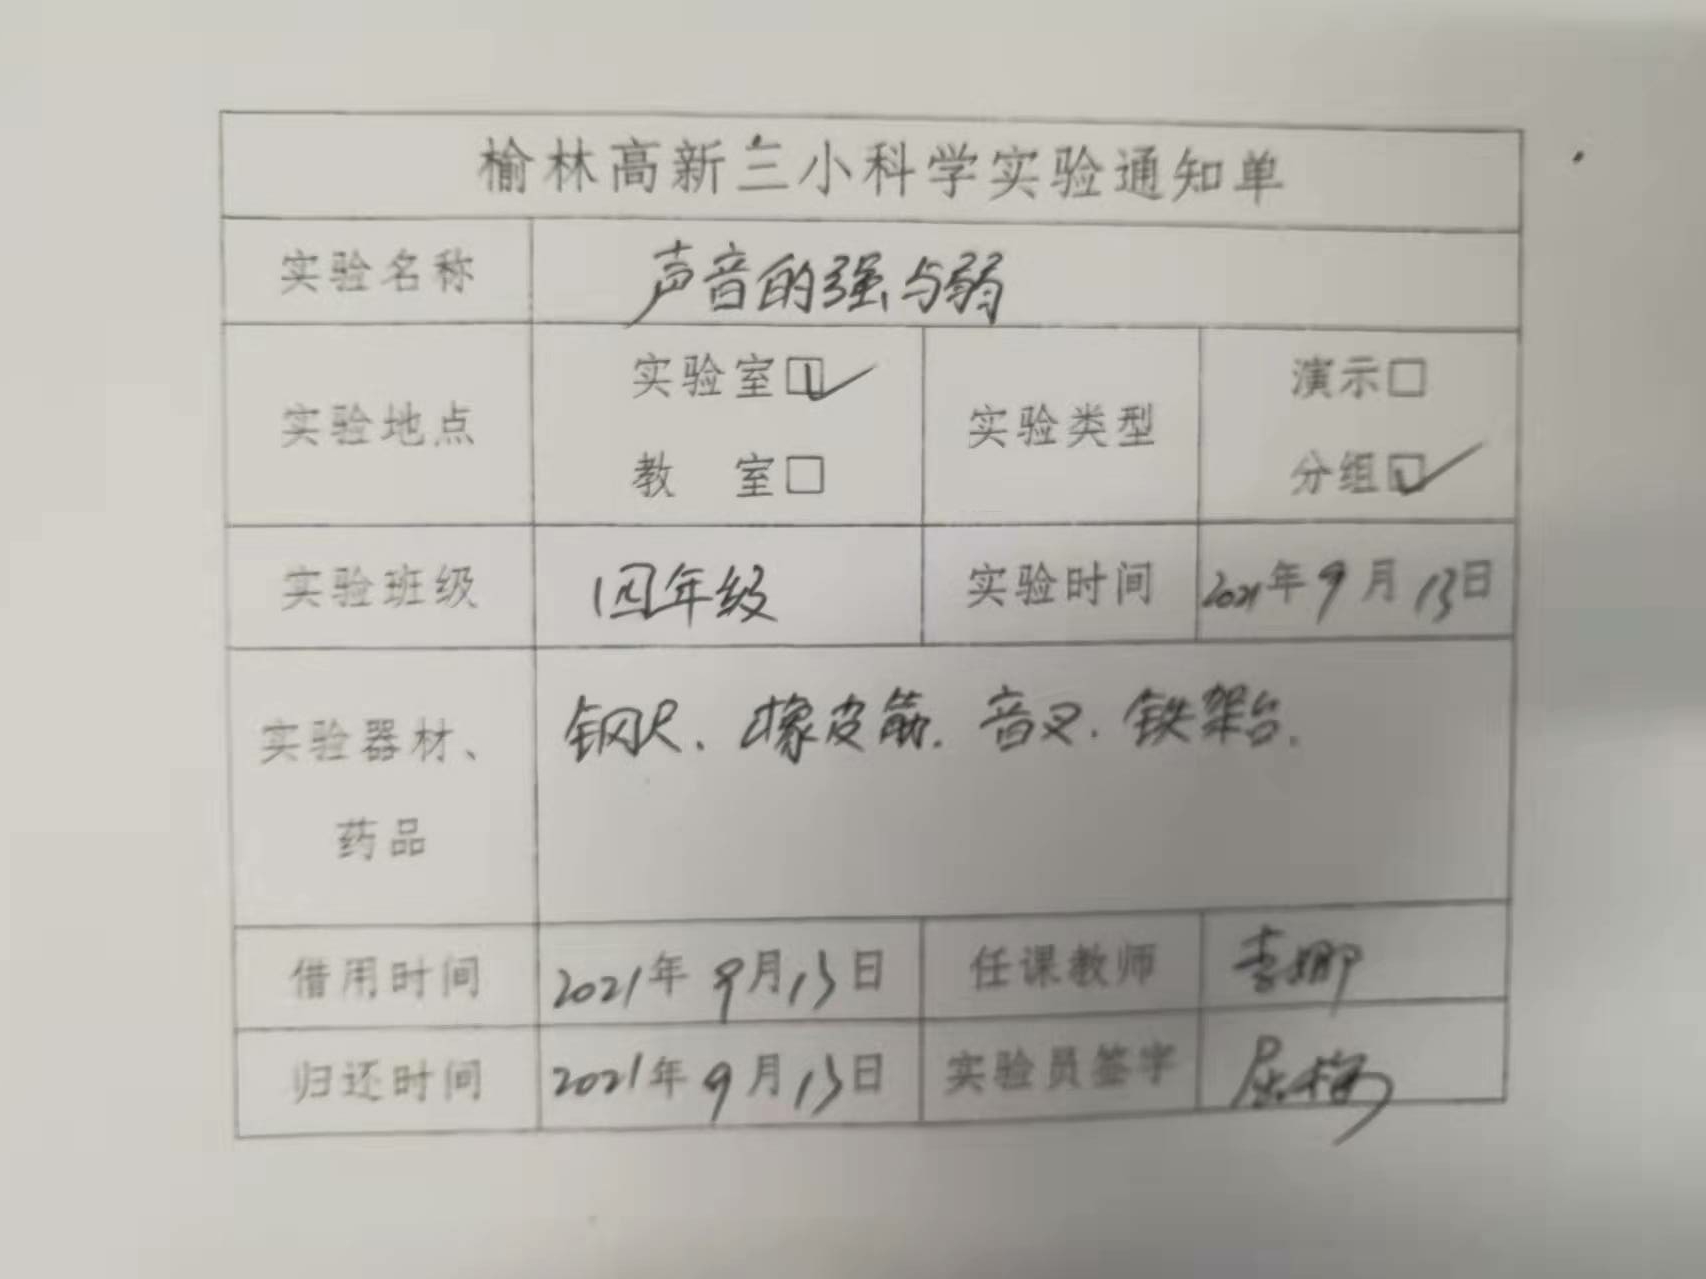 榆林高新三小科学实验通知单
实验名称 声音的强与弱
实验地点 实验室☑ 教 室□ 实验类型 演示□ 分组☑
实验班级 四年级 实验时间 2021年9月13日
实验器材、药品 钢尺、橡皮筋、音叉、铁架台、
借用时间 2021年9月13日 任课教师 李娜
归还时间 2021年9月13日 实验员签字